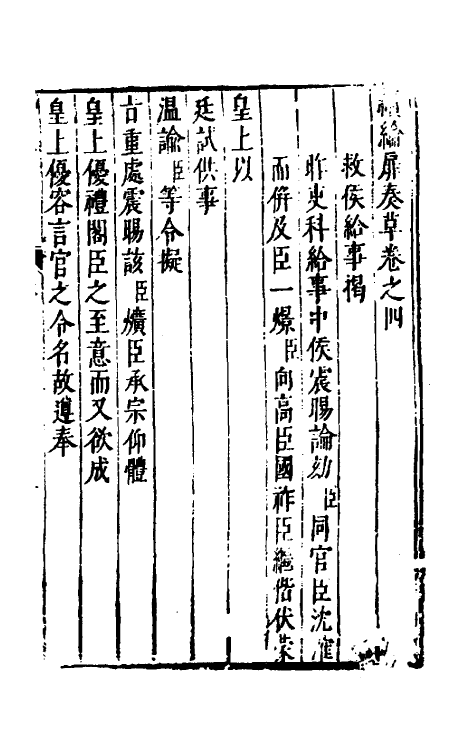 續綸扉奏草卷之四
救侯給事揭
昨吏科給事中侯震暘論劾臣同官臣沈㴶
而併及臣一燝臣向高臣國祚臣繼偕伏蒙
皇上以
廷試供事
温諭臣等令擬
旨重處震賜該臣爌臣承宗仰體
皇上優禮閣臣之至意而又欲成
皇上優容言官之令名故遵奉